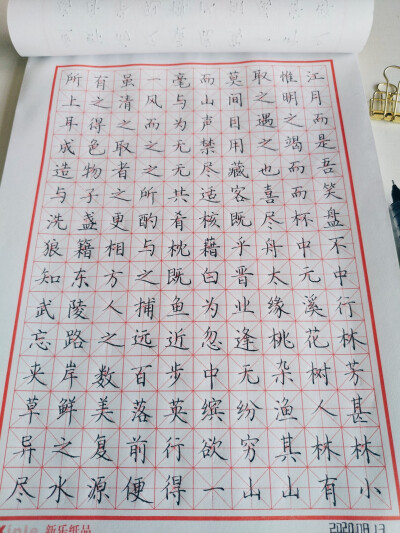 所有虽一毫而莫取惟江
上之清风与山间之明月
耳得之而为声目遇之而
成色取之无禁用之竭是
造物者之无尽藏也而吾
与子之所共适客喜而笑
洗盏更酌肴核既尽杯盘
狼籍相与枕藉乎舟中不
知东方之既白晋太元中
武陵人捕鱼为业缘溪行
忘路之远近忽逢桃花林
夹岸数百步中无杂树芳
草鲜美落英缤纷渔人甚
异之复前行欲穷其林林
尽水源便得一山山有小
新乐纸品
2020.08.13